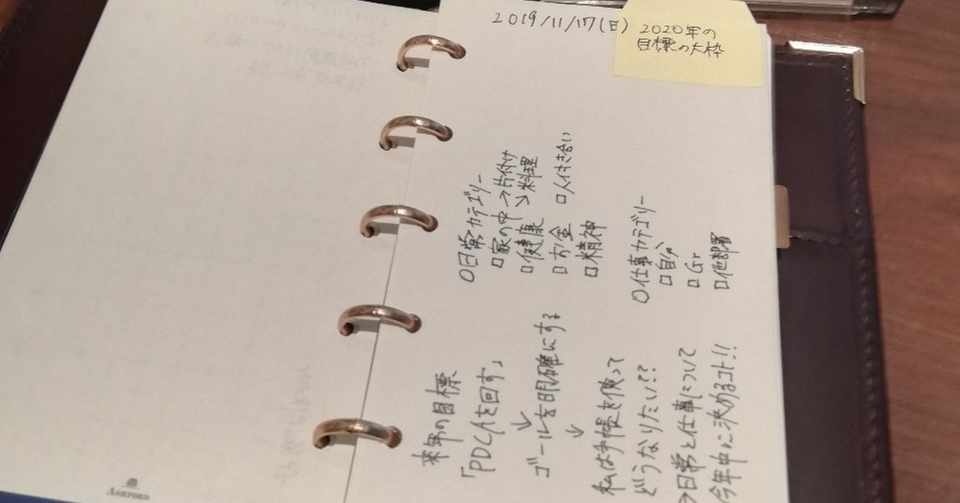 2019/11/17(日)
2020年の
目標の大枠
来年の目標
「PDCAを回す」
↓
ゴールを明確にする
↓
私は手帳を使って
どうなりたい??
→日常と仕事について
今年中に決めるコト!!
○日常カテゴリー
□家の中→片付け
↘料理
□健康
□お金
□精神
□人付き合い
○仕事カテゴリー
□自分
□Gr
□他部署
ASHFORD